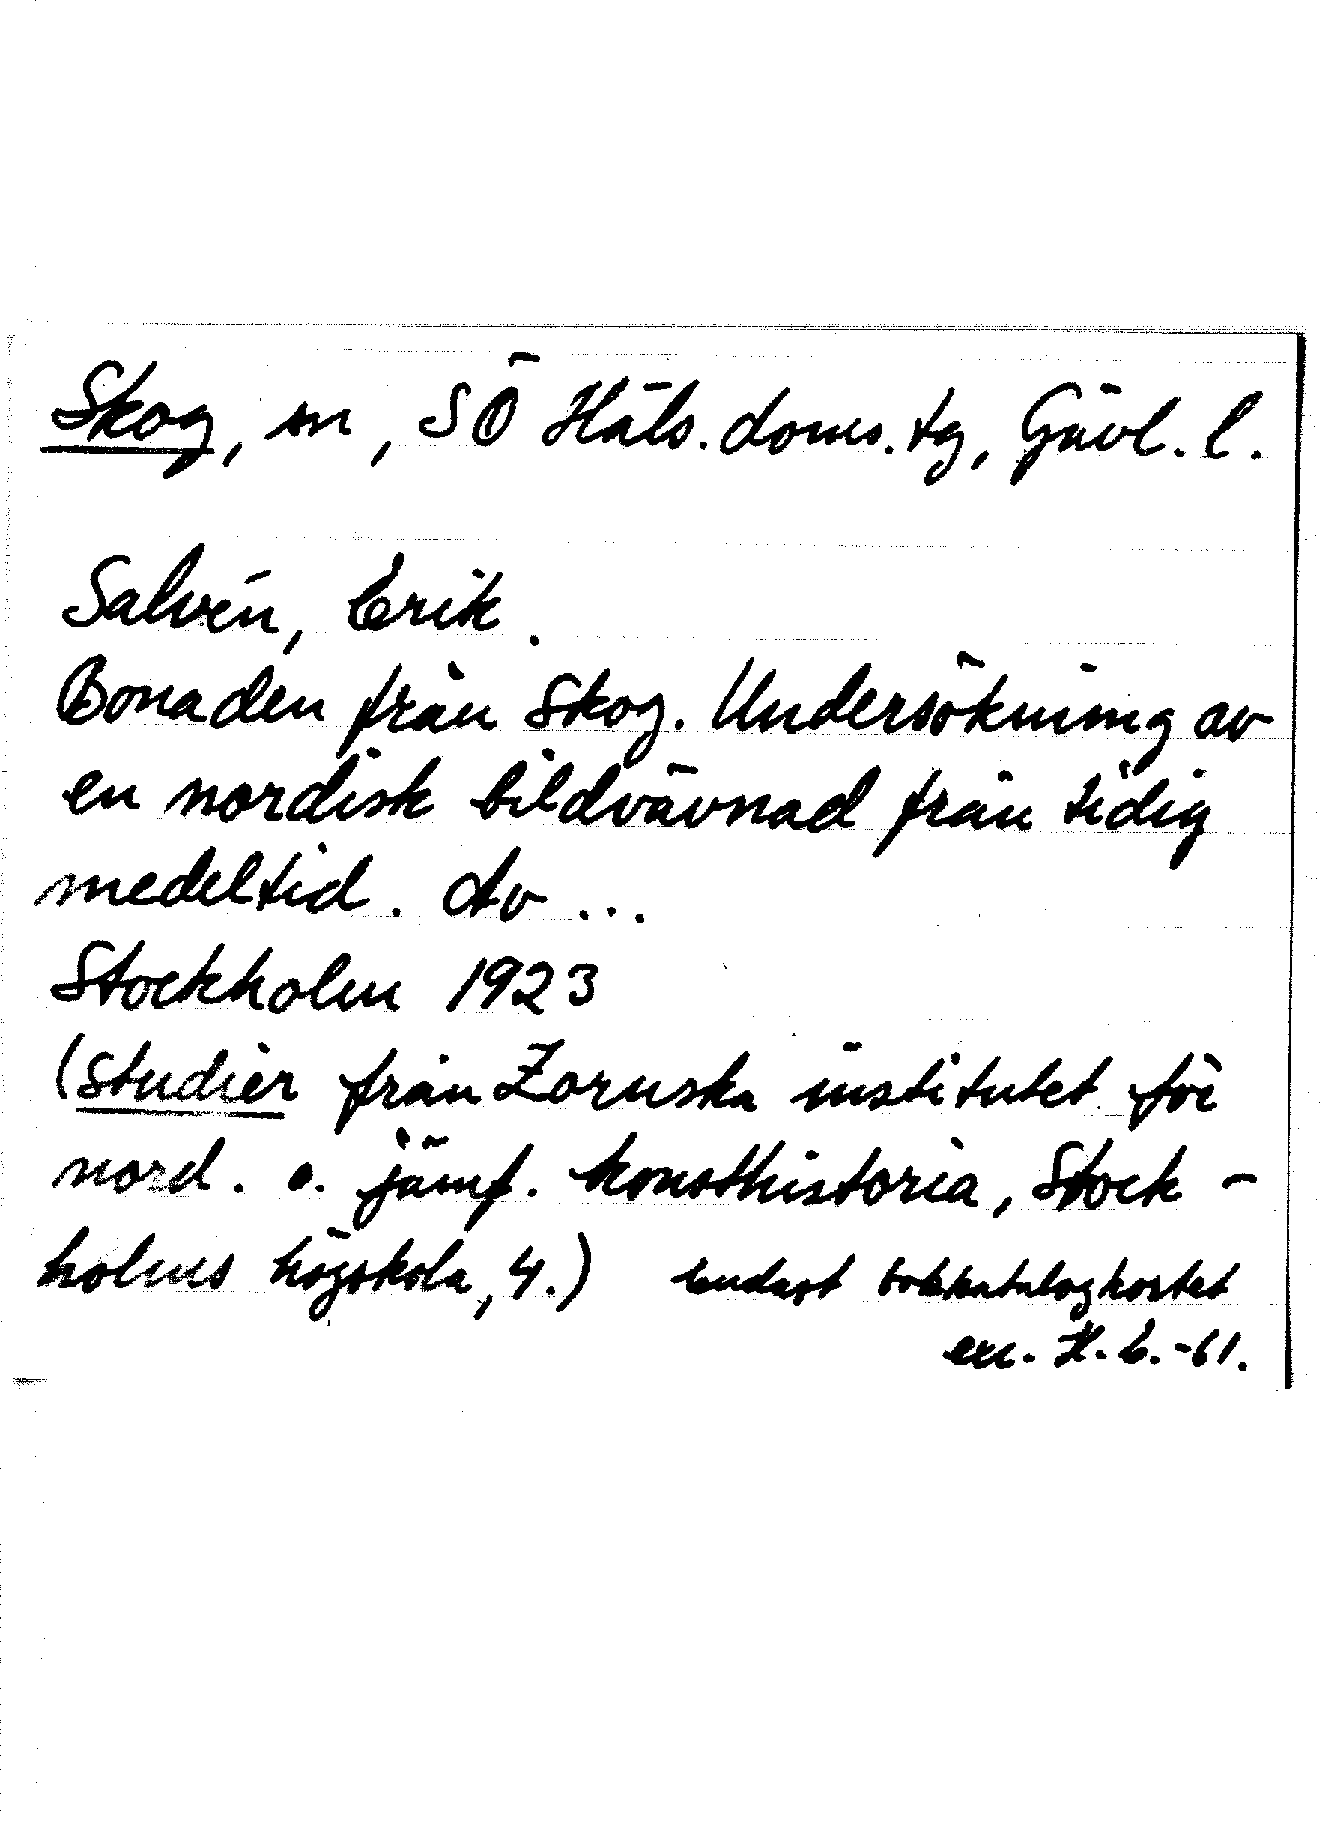 Skog, sn, SÖ Häls. doms. tg, Gävl. l.
Salvén, Erik.
Bonaden från Skog. Undersökning av
en nordisk bildvävnad från tidig
medeltid. Av ...
Stockholm 1923
(Studier från Zornska institutet för
nord. o. jämf. konsthistoria, Stock-
holms högskola, 4.) Endast bokkatalogkortet
exc. H. E. -61.